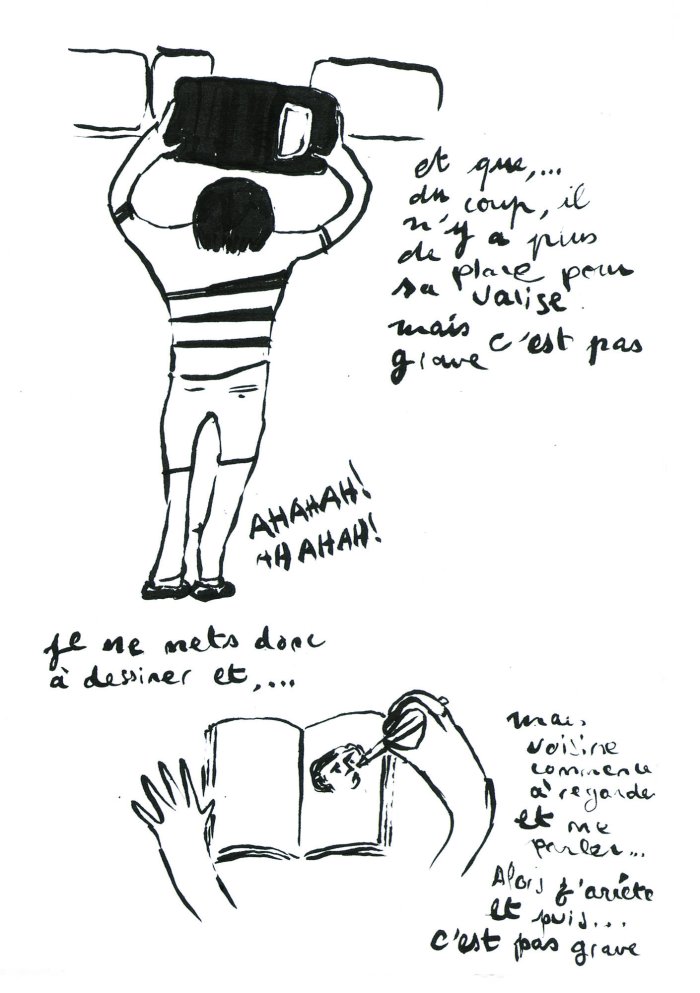 et que,...
du coup, il
n'y a plus
de place pour
sa valise.
mais c'est pas
grave
AHAHAH!
AHAHAH!
je me mets donc
à dessiner et,...
mais
voisine
commence
à regarder
et me
parler...
Alors j'arrête
et puis...
c'est pas grave